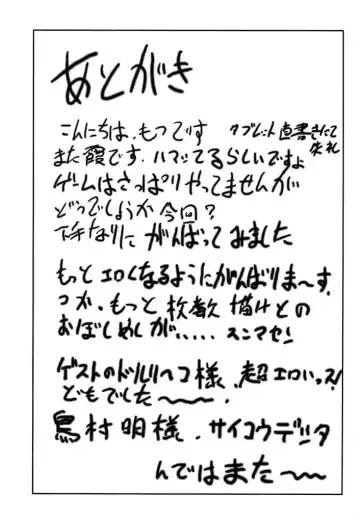 あとがき
こんにちは、もつです タブレット直書きにて失礼
また霞です、ハマッてるらしいですよ
ゲームはさっぱりやってませんが
どうでしょうか今回?
下手なりにがんばってみました
もっとエロくなるようにがんばりま〜す。
つか、もっと枚数描けとの
おぼしめしが、、、、、スンマセン
ゲストのドルリヘコ様、超エロいっス!
どもでした〜〜。
鳥村明様、サイコウデシタ
んではまた〜〜